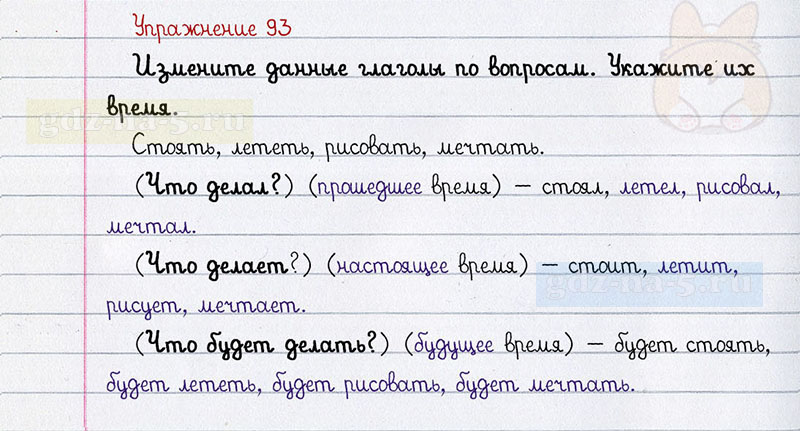 Упражнение 93
Измените данные глаголы по вопросам. Укажите их
время.
gdz-na-5.ru
Стоять, лететь, рисовать, мечтать.
(Что делал?) (прошедшее время) – стоял, летел, рисовал,
мечтал.
(Что делает?) (настоящее время) – стоит, летит,
gdz-na-5.ru
рисует, мечтает.
(Что будет делать?) (будущее время) – будет стоять,
будет лететь, будет рисовать, будет мечтать.